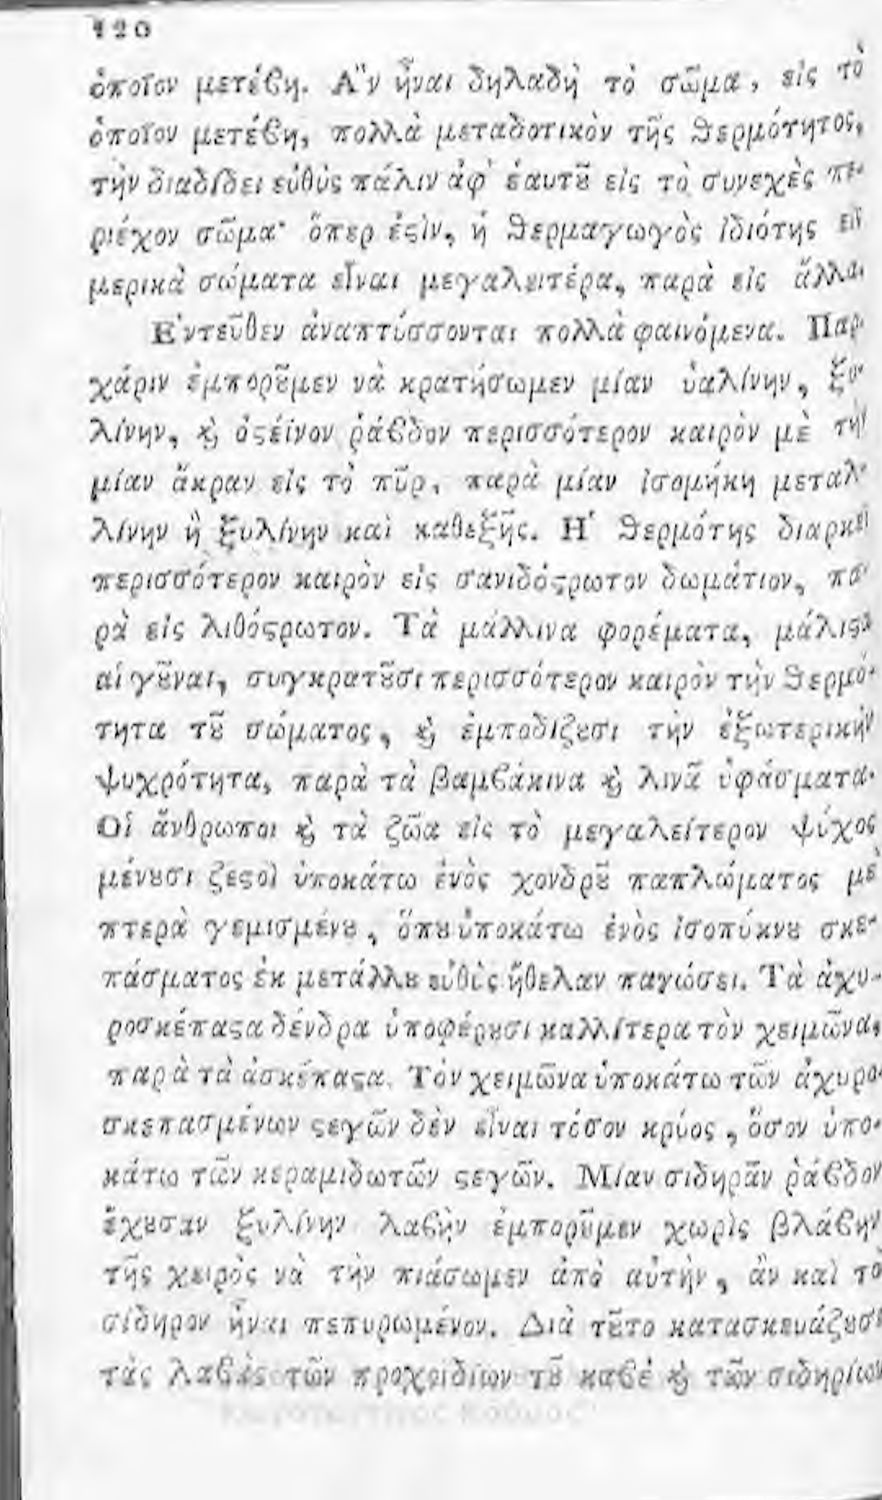 120
ὁποῖον μετέβη. Ἂν ἦναι δηλαδὴ τὸ σῶμα, εἰς τὸ
ὁποῖον μετέβη, πολλὰ μεταδοτικὸν τῆς θερμότητος,
τὴν διαδίδει εὐθὺς πάλιν ἀφ' ἑαυτȣ͂ εἰς τὸ συνεχὲς πε-
ριέχον σῶμα· ὅπερ ἐϛὶν, ἡ θερμαγωγὸς ἰδιότης εἰς
μερικὰ σώματα εἶναι μεγαλειτέρα, παρὰ εἰς ἄλλα.
Ἐντεῦθεν ἀναπτύσσονται πολλὰ φαινόμενα. Παρ.
χάριν ἐμπορȣ͂μεν νὰ κρατήσωμεν μίαν ὑαλίνην, ξυ-
λίνην, ϗ̀ ὀϛέϊνον ῥάβδον περισσότερον καιρὸν μὲ τὴν
μίαν ἄκραν εἰς τὸ πῦρ, παρὰ μίαν ἰσομήκη μεταλ-
λίνην ἢ ξυλίνην καὶ καθεξῆς. Ἡ θερμότης διαρκεῖ
περισσότερον καιρὸν εἰς σανιδόϛρωτον δωμάτιον, πα-
ρὰ εἰς λιθόϛρωτον. Τὰ μάλλινα φορέματα, μάλιϛα
αἱ γȣ͂ναι, συγκρατȣ͂σι περισσότερον καιρὸν τὴν θερμό-
τητα τȣ͂ σώματος, ϗ̀ ἐμποδίζȣσι τὴν ἐξωτερικὴν
ψυχρότητα, παρὰ τὰ βαμβάκινα ϗ̀ λινᾶ ὑφάσματα.
Οἱ ἄνθρωποι ϗ̀ τὰ ζῶα εἰς τὸ μεγαλείτερον ψύχος
μένȣσι ζεϛοὶ ὑποκάτω ἑνὸς χονδρȣ͂ παπλώματος μὲ
πτερὰ γεμισμένȣ, ὅπȣ ὑποκάτω ἑνὸς ἰσοπύκνȣ σκε-
πάσματος ἐκ μετάλλȣ εὐθὺς ἤθελαν παγώσει. Τὰ ἀχυ-
ροσκέπαϛα δένδρα ὑποφέρȣσι καλλίτερα τὸν χειμῶνα,
παρὰ τὰ ἀσκέπαϛα. Τὸν χειμῶνα ὑποκάτω τῶν ἀχυρο-
σκεπασμένων ϛεγῶν δὲν εἶναι τόσον κρύος, ὅσον ὑπο-
κάτω τῶν κεραμιδωτῶν ϛεγῶν. Μίαν σιδηρᾶν ῥάβδον
ἔχȣσαν ξυλίνην λαβὴν ἐμπορȣ͂μεν χωρὶς βλάβην
τῆς χειρὸς νὰ τὴν πιάσωμεν ἀπὸ αὐτὴν, ἂν καὶ τὸ
σίδηρον ἦναι πεπυρωμένον. Διὰ τȣ͂το κατασκευάζȣσι
τὰς λαβὰς τῶν προχοιδίων τȣ͂ καβέ ϗ̀ τῶν σιδηρίων